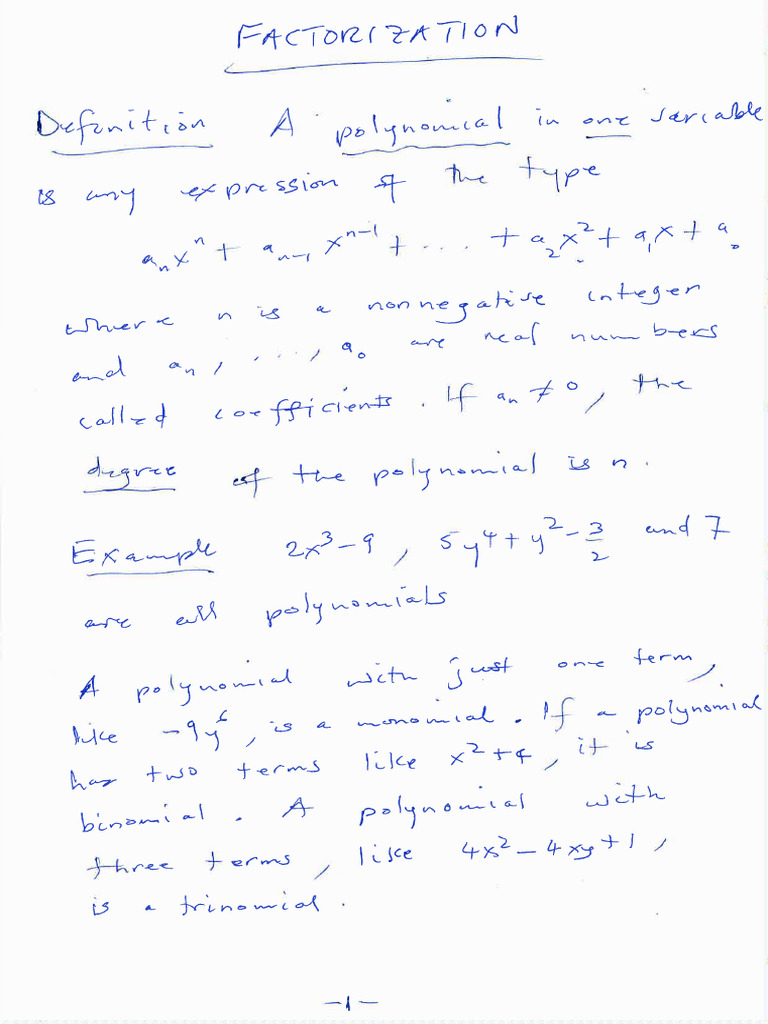 FACTORIZATION
Definition A polynomial in one variable
is any expression of the type
aₙxⁿ + aₙ₋₁xⁿ⁻¹ + ... + a₂x² + a₁x + a₀
where n is a nonnegative integer
and aₙ, ..., a₀ are real numbers
called coefficients. If aₙ ≠ 0, the
degree of the polynomial is n.
Example 2x³ - 9, 5y⁴ + y² - 3/2 and 7
are all polynomials
A polynomial with just one term,
like -9y⁶, is a monomial. If a polynomial
has two terms like x² + 4, it is
binomial. A polynomial with
three terms, like 4x² - 4xy + 1,
is a trinomial.
-1-